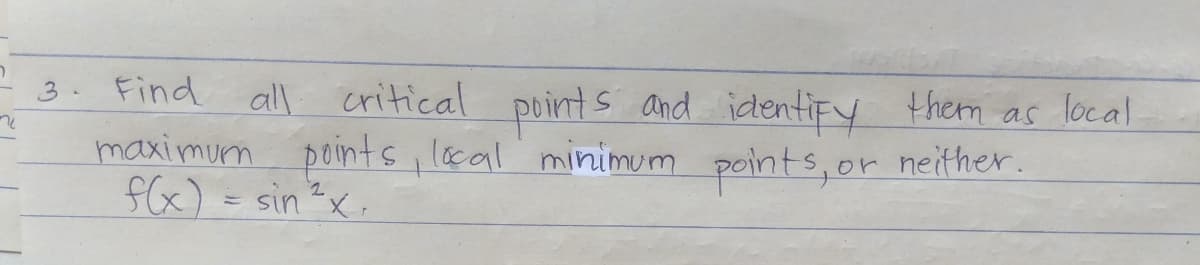 3. Find all critical points and identify them as local
maximum points, local minimum points, or neither.
f(x) = sin²x.